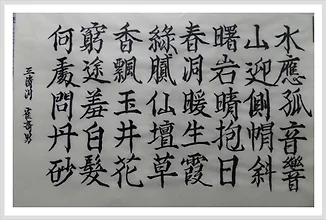 水應孤音響
山迎側帽斜
曙岩晴抱日
春洞暖生霞
綠膩仙壇草
香飄玉井花
窮途羞白髮
何處問丹砂
三清洞 崔奇男